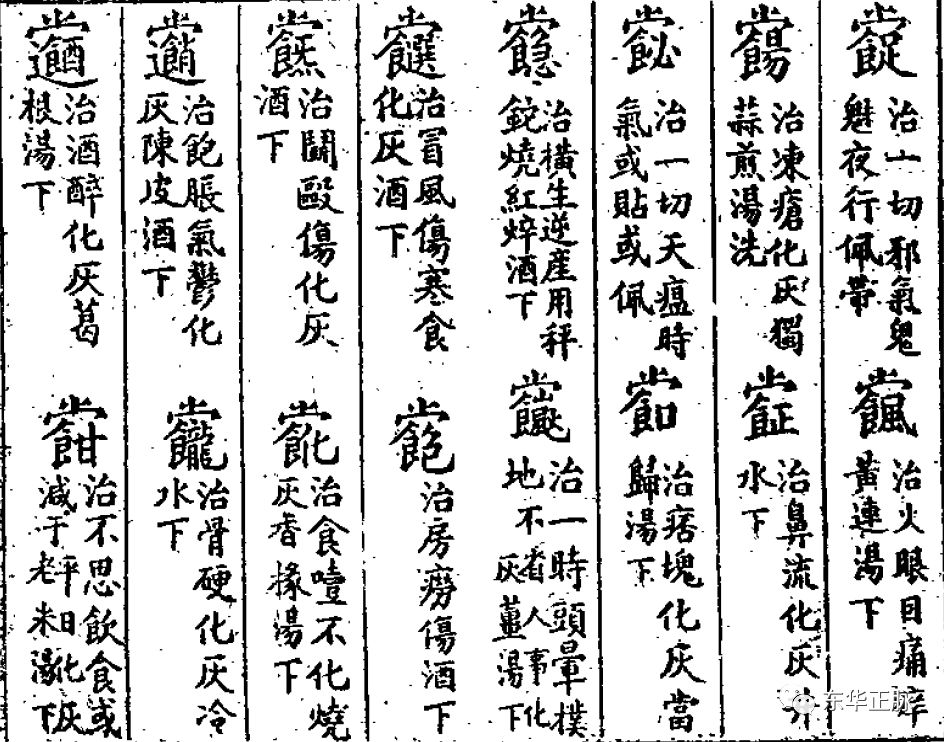 治一切邪氣鬼
魅夜行佩帶
治火眼目痛痒
黃連湯下
治凍瘡化灰獨
蒜煎湯洗
治鼻流化灰井
水下
治一切天瘟時
氣或貼或佩
治痞塊化灰當
歸湯下
治橫生逆產用秤
錠燒紅焠酒下
治一時頭暈撲
地不省人事化
灰薑湯下
治冒風傷寒食
化灰酒下
治房癆傷酒下
治鬪毆傷化灰
酒下
治食噎不化燒
灰香椽湯下
治飽脹氣鬱化
灰陳皮酒下
治骨硬化灰冷
水下
治酒醉化灰葛
根湯下
治不思飲食或
減于平日化灰
老米湯下
东华正脉